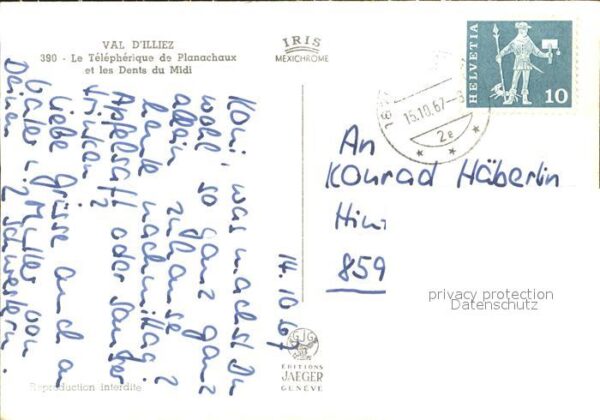 VAL D'ILLIEZ
390 - Le Téléphérique de Planachaux
et les Dents du Midi
IRIS
MEXICHROME
HELVETIA
10
15.10.67-8
2e
An
Konrad Häberlin
859
privacy protection
Datenschutz
14.10.67
Koni, was machst Du
wohl so ganz ganz
allein zuhause
heute nachmittag?
Apfelsaft oder saufer
trinken?
Liebe Grüsse auch an
Vater u. Mutter von
Deinen 2 Schwestern.
EDITIONS
JAEGER
GENÈVE
Reproduction interdite